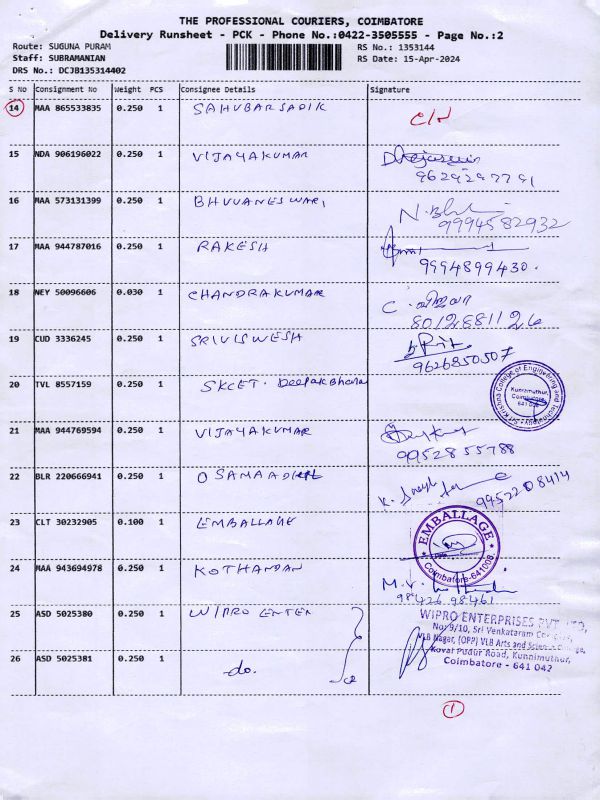 THE PROFESSIONAL COURIERS, COIMBATORE
Delivery Runsheet - PCK - Phone No.:0422-3505555 - Page No.:2
Route: SUGUNA PURAM RS No.: 1353144
Staff: SUBRAMANIAN RS Date: 15-Apr-2024
DRS No.: DCJB135314402
S No Consignment No Weight PCS Consignee Details Signature
14 MAA 865533835 0.250 1 SAHUBARSADIK
15 NDA 906196022 0.250 1 VIJAYAKUMAR
9629297791
16 MAA 573131399 0.250 1 BHUVANESWARI
9994582932
17 MAA 944787016 0.250 1 RAKESH
9994899430.
18 NEY 50096606 0.030 1 CHANDRAKUMAR
8012881126
19 CUD 3336245 0.250 1 SRIVISWESH
9626850507
20 TVL 8557159 0.250 1 SKCET. Deepak Bhara
Sri Krishna College of Engineering and
Kuniamuthur,
Coimbatore
21 MAA 944769594 0.250 1 VIJAYAKUMAR
9952855788
22 BLR 220666941 0.250 1 OSAMAADHIL
9952208414
23 CLT 30232905 0.100 1 EMBALLAGE
EMBALLAGE
Coimbatore-641008
24 MAA 943694978 0.250 1 KOTHANDAN
98426 98461
25 ASD 5025380 0.250 1 WIPRO ENTER
WIPRO ENTERPRISES PVT LTD,
No: 9/10, Sri Venkataram
VLB Nagar, (OPP) VLB Arts and Science College,
Kovai Pudur Road, Kunnimuthur,
Coimbatore - 641 042
26 ASD 5025381 0.250 1 -do.
1